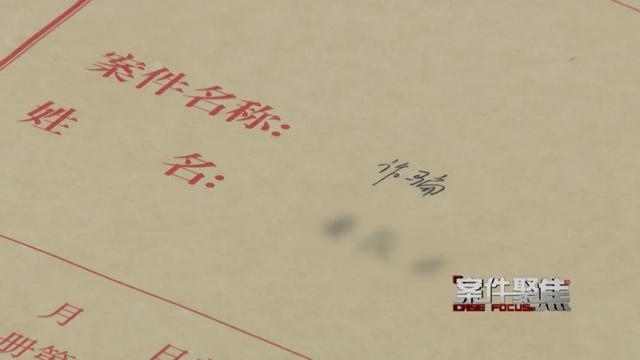 案件名称:
诈骗
姓名:
月 日
册第
案件聚焦
CASE FOCUS